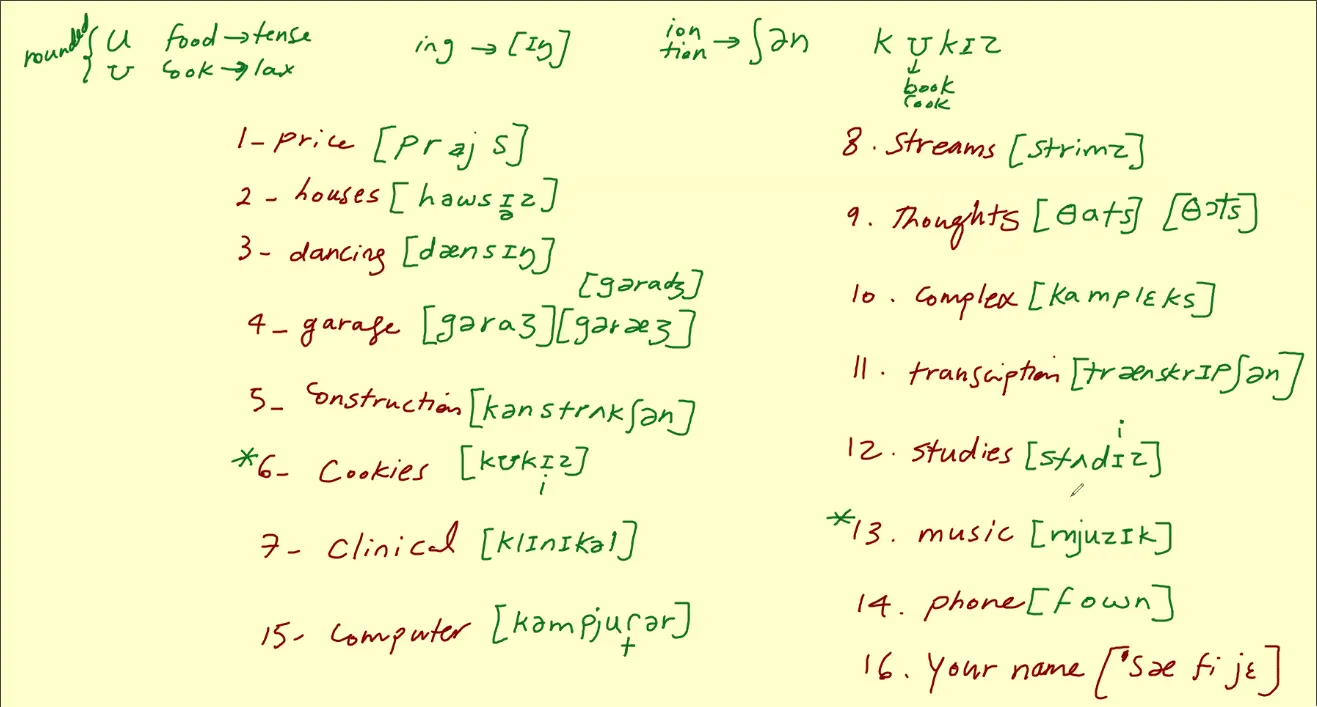 rounded { u food → tense
ʊ cook → lax
ing → [ɪŋ]
ion
tion → ʃən
kʊkɪz
↓
book
cook
1 - price [prajs]
2 - houses [hawsɪz]
ə
3 - dancing [dænsɪŋ]
[gəradʒ]
4 - garage [gəraʒ] [gəræʒ]
5 - Construction [kənstrʌkʃən]
*6 - Cookies [kʊkɪz]
i
7 - Clinical [klɪnɪkəl]
15 - Computer [kəmpjuɾər]
t
8. Streams [strimz]
9. Thoughts [θats] [θɔts]
10. Complex [kamplɛks]
11. transcription [trænskrɪpʃən]
i
12. studies [stʌdɪz]
*13. music [mjuzɪk]
14. phone [fown]
16. Your name ['sæ fi jɛ]